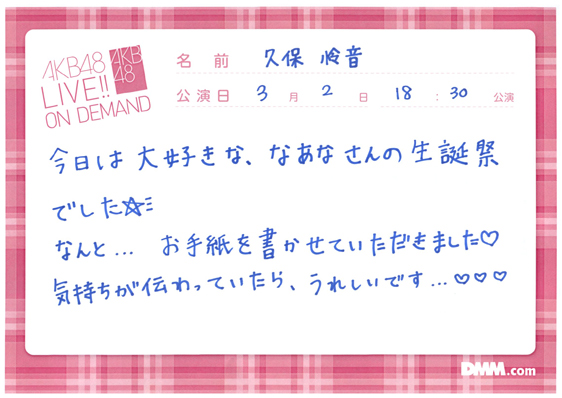 AKB48
LIVE!!
ON DEMAND
AKB
48
名前 久保 怜音
公演日 3月2日 18:30公演
今日は大好きな、なあなさんの生誕祭
でした☆ミ
なんと... お手紙を書かせていただきました♡
気持ちが伝わっていたら、うれしいです...♡♡♡
DMM.com